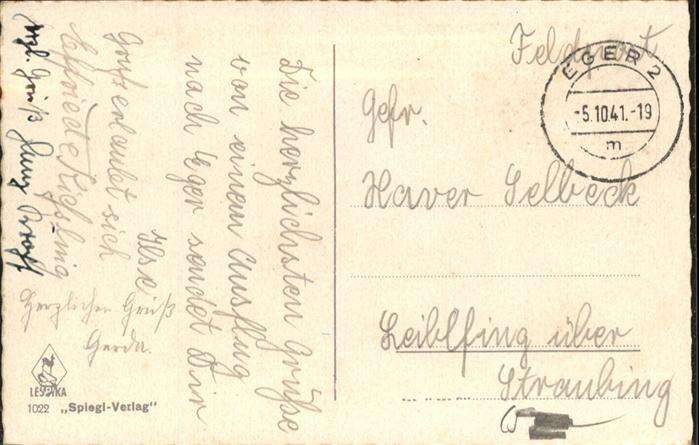 Feldpost
EGER 2
-5.10.41.-19
m
Gefr.
Xaver Selbeck
Leiblfing über
Straubing
Die herzlichsten Grüße
von einem Ausflug
nach Eger sendet Dir
Ilse
Gruß erlaubt sich
Elfriede
Gruß
Herzlichen Gruß
Gerda.
LESSTKA
1022 „Spiegl-Verlag"